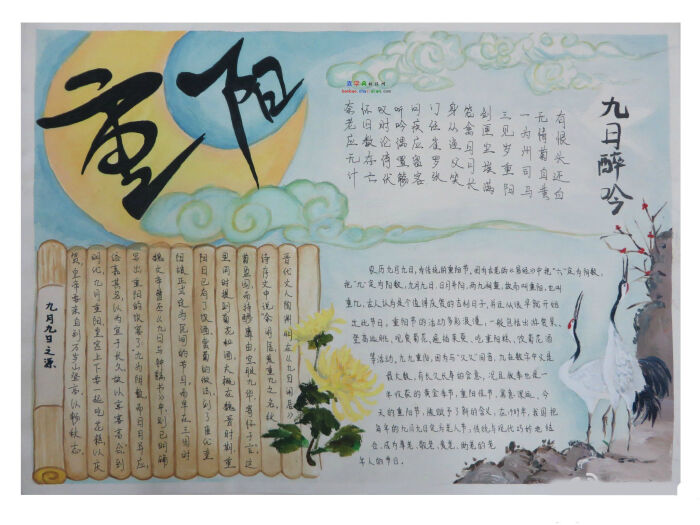 重阳
九日醉吟
有恨头还白
无情菊自黄
一为州司马
三见岁重阳
剑匣尘埃满
笼禽日月长
身从渔父笑
门任雀罗张
问疾应留客
听吟偶置觞
叹时论倚伏
怀旧数存亡
奈老应无计
九月九日之源
晋代文人陶渊明在《九日闲居》
诗序文中说“余闲居爱重九之名秋
菊盈园而持醪靡由空服九华寄怀于言”这
里同时提到菊花和酒大概在魏晋时期重
阳日已有了饮酒赏菊的做法到了唐代重
阳被正式定为民间的节日而早在三国时
魏文帝曹丕《九日与钟繇书》中则已明确
写出重阳的饮宴了“九为阳数而日月并应
俗嘉其名以为宜于长久故以享宴高会”到
明代九月重阳皇宫上下要一起吃花糕以庆
贺皇帝要亲自到万岁山登高以畅秋志
农历九月九日,为传统的重阳节。因为古老的《易经》中把“六”定为阴数,
把“九”定为阳数,九月九日,日月并阳,两九相重,故而叫重阳,也叫
重九,古人认为是个值得庆贺的吉利日子,并且从很早就开始
过此节日。重阳节的活动多彩浪漫,一般包括出游赏景、
登高远眺、观赏菊花、遍插茱萸、吃重阳糕、饮菊花酒
等活动。九九重阳,因为与“久久”同音,九在数字中又是
最大数,有长久长寿的含意,况且秋季也是一
年收获的黄金季节,重阳佳节,寓意深远。今
天的重阳节,被赋予了新的含义,在1989年,我国把
每年的九月九日定为老人节,传统与现代巧妙地结
合,成为尊老、敬老、爱老、助老的老
年人的节日。